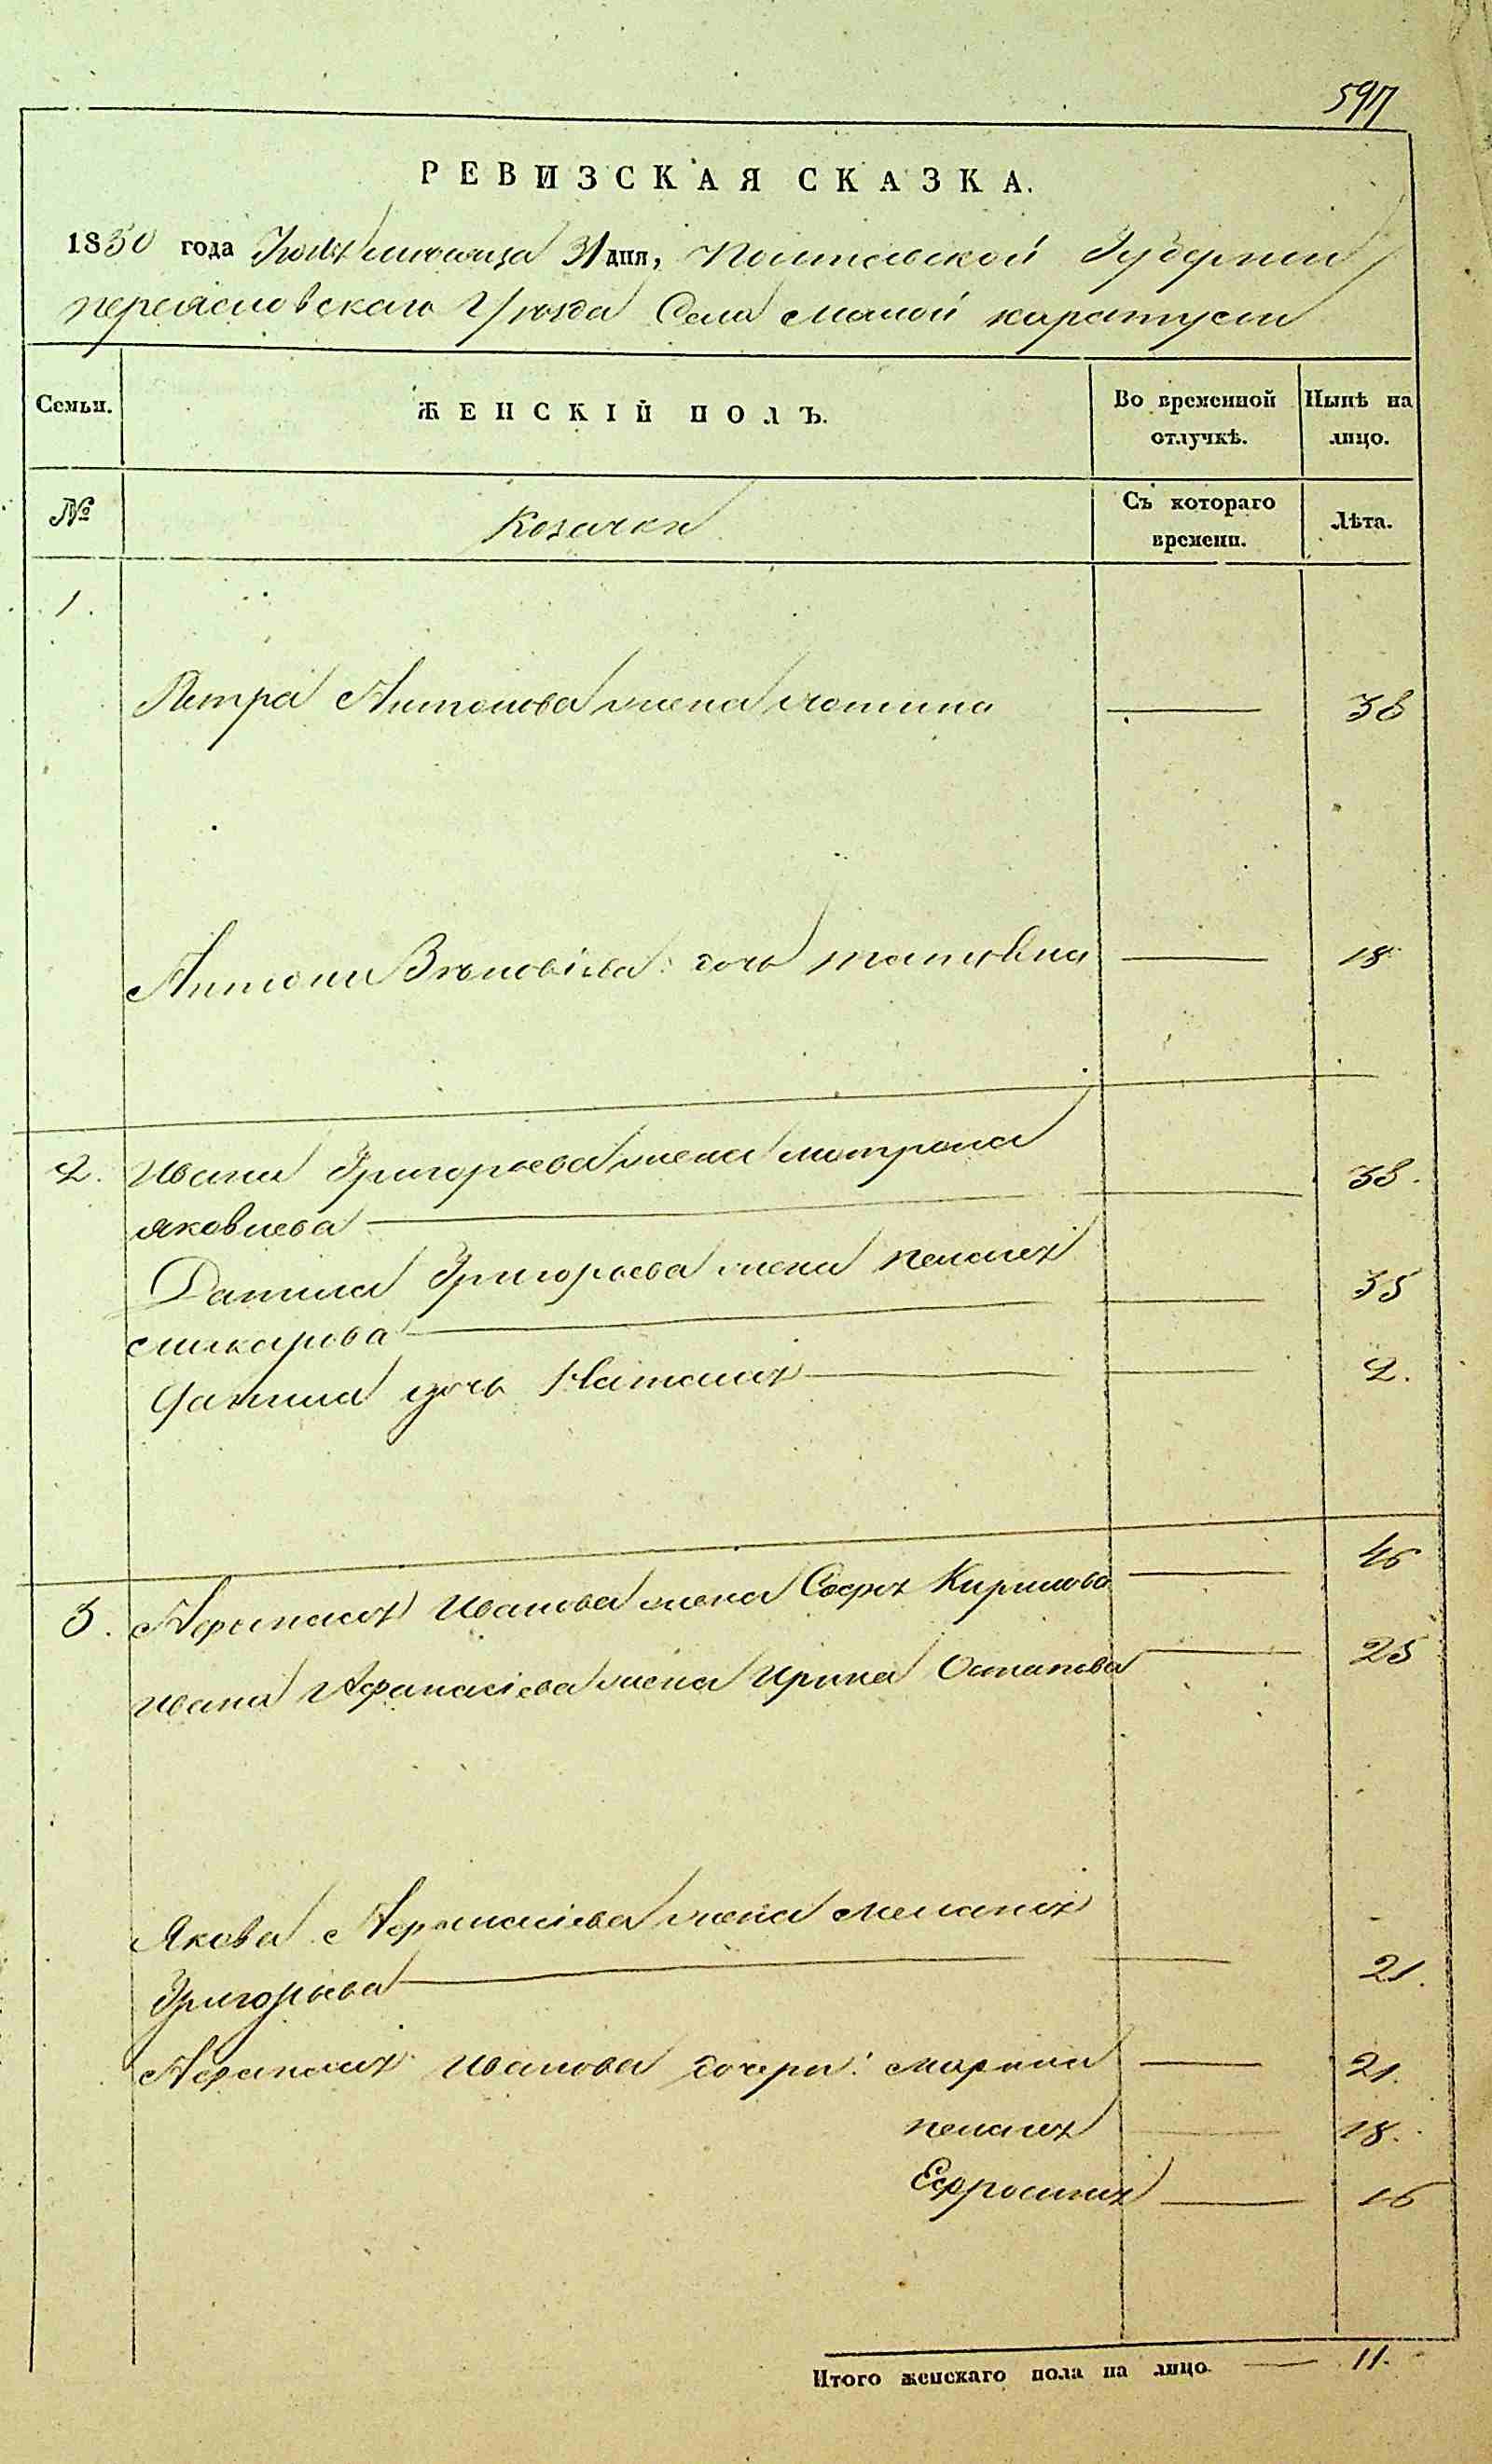 597
РЕВИЗСКАЯ СКАЗКА.
1850 года Июля месяца 31 дня, Полтавской Губернии
переясловского Уезда Села Малой каратули
Семьи. ЖЕНСКІЙ ПОЛЪ. Во временной отлучкѣ. Нынѣ на лицо.
№ Козачки Съ котораго времени. Лѣта.
1.
Петра Антонова жена 38
Антона дочь татіяна 18
2. Ивана Григорьева жена матрона 38.
яковлева
Данила Григорьева жена пелагея 35
макарова
Данила дочь Наталія 2.
3. Афанасія Иванова жена Софія Кирилова 46
Ивана Афанасіева жена Ирина Остапова 25
Якова Афанасіева жена Меланія
Григорьева 21.
Афанасія Иванова дочери: марина 21.
пелагея 18.
Ефросинія 16
Итого женскаго пола на лицо. 11.